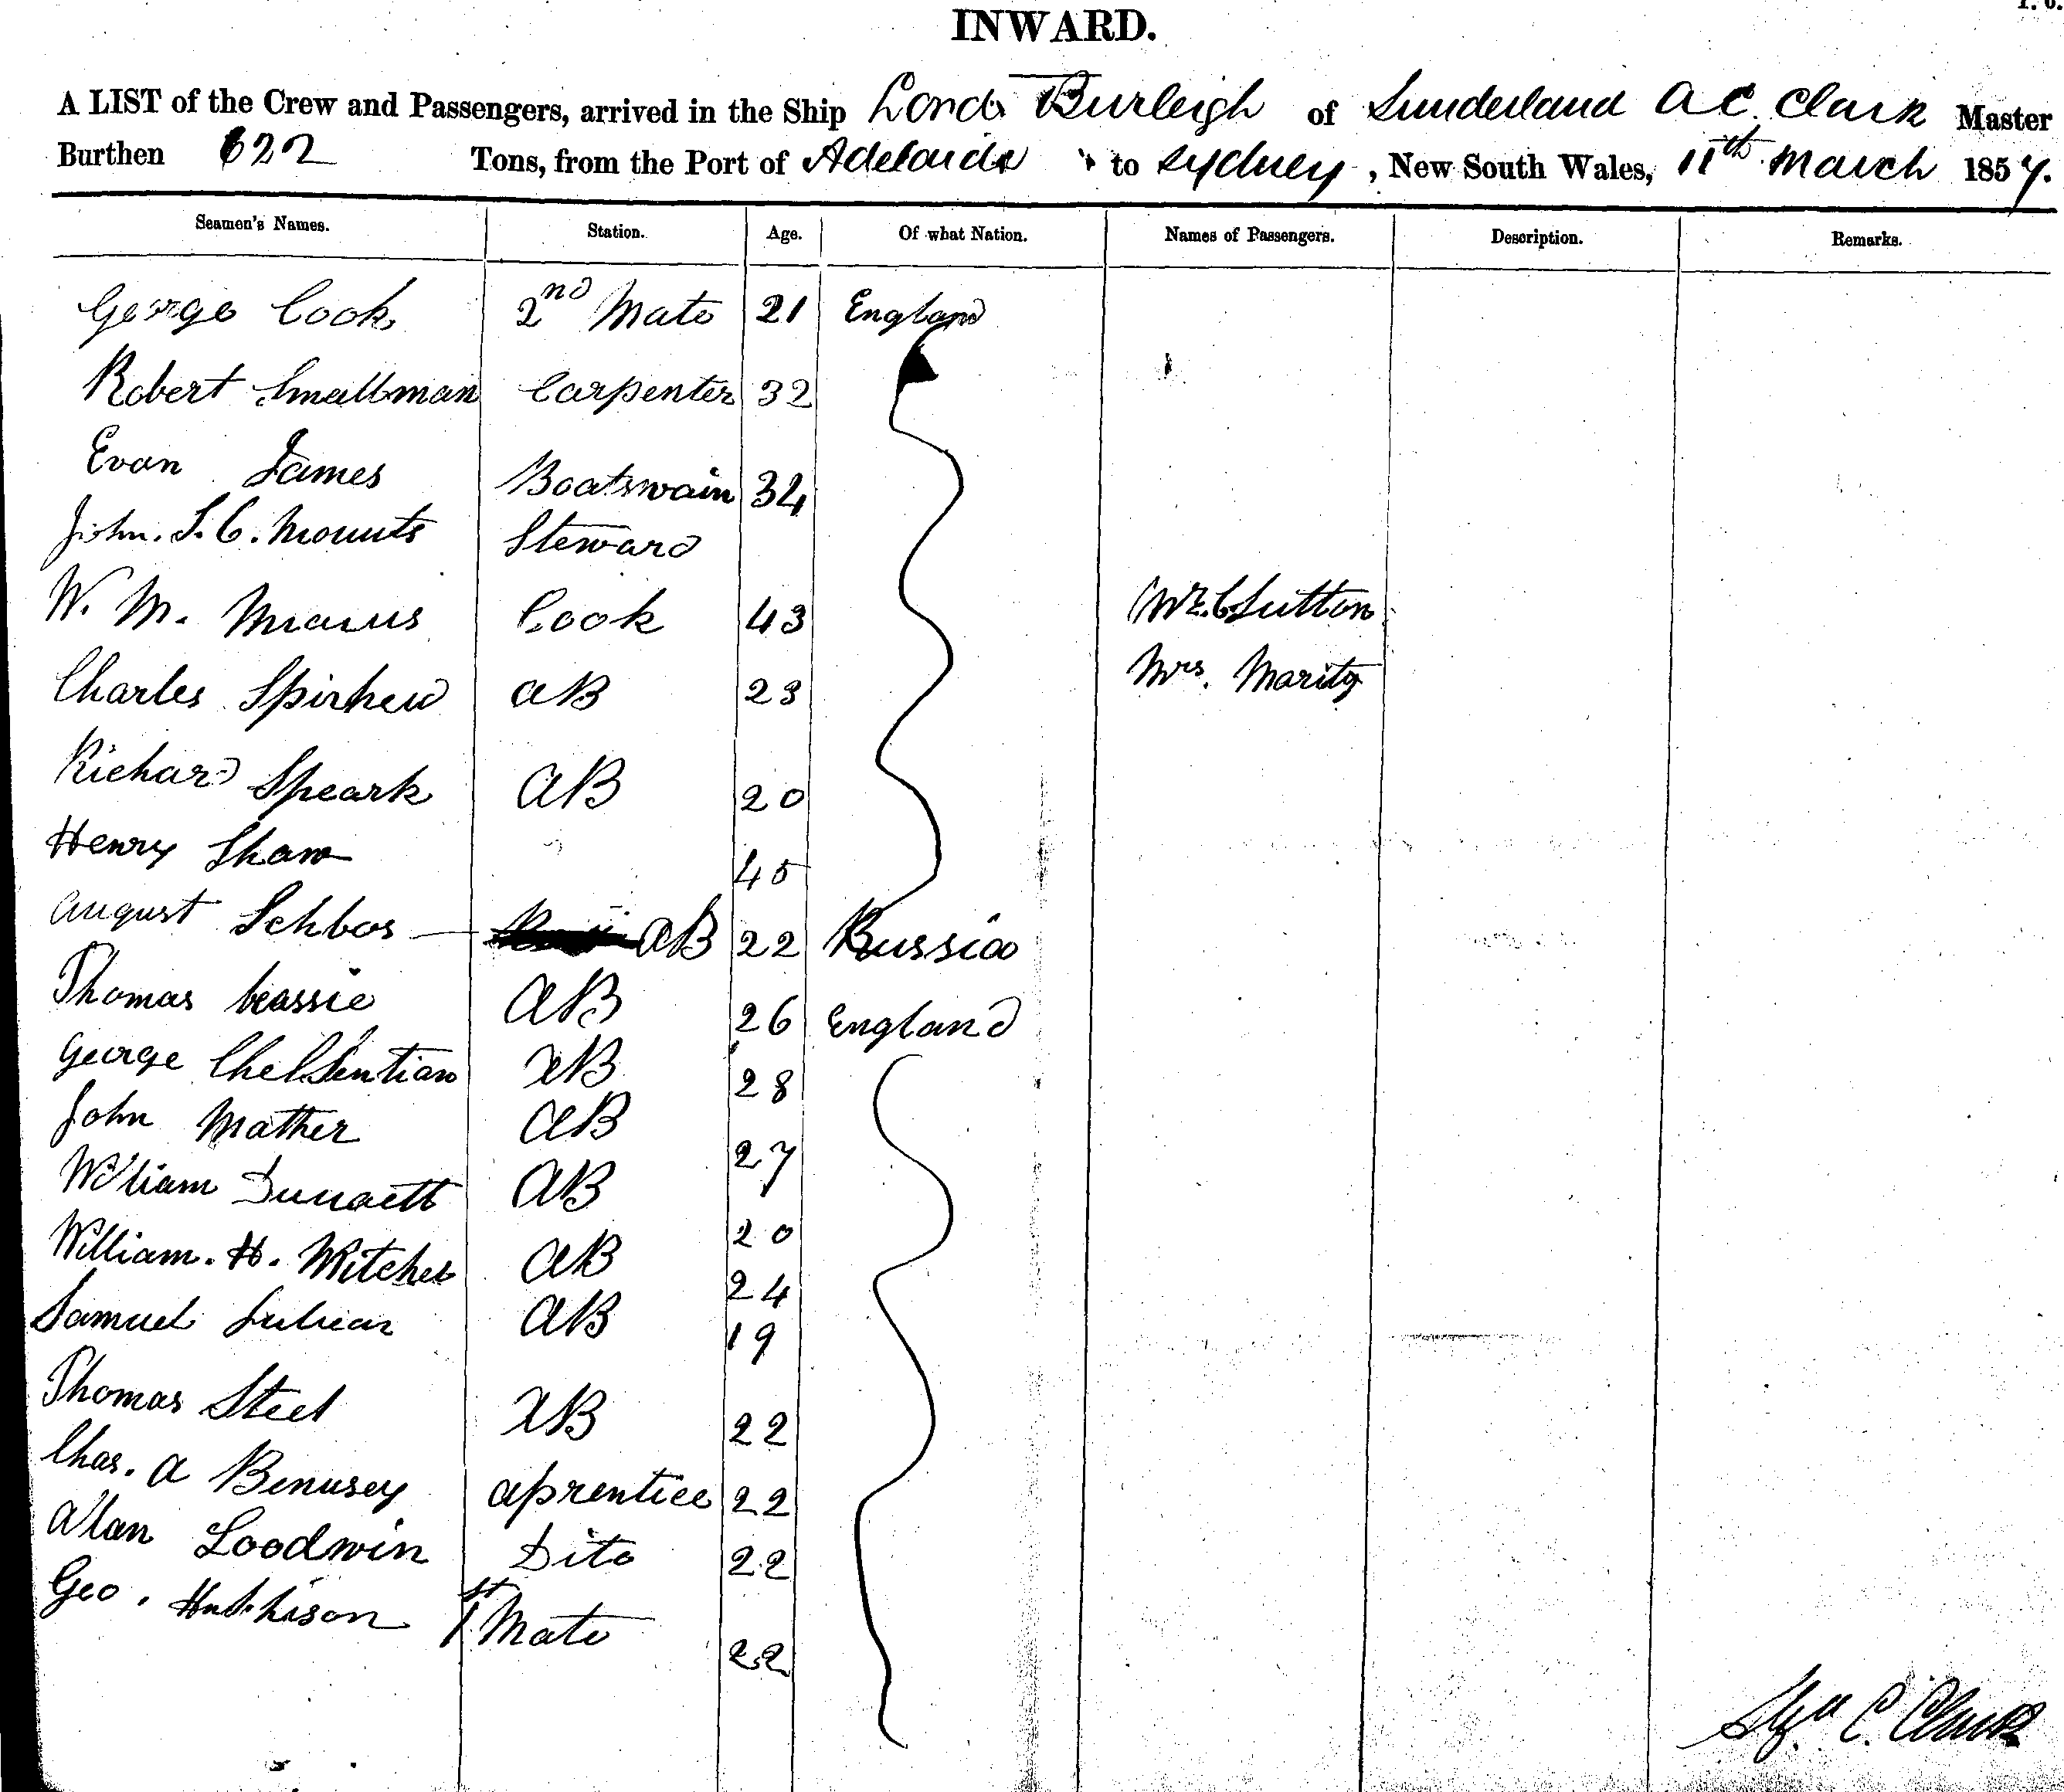 INWARD.
A LIST of the Crew and Passengers, arrived in the Ship Lord Burleigh of Sunderland A C. Clark Master
Burthen 622 Tons, from the Port of Adelaide to Sydney, New South Wales, 11th March 1857.
Seamen's Names. Station. Age. Of what Nation. Names of Passengers. Description. Remarks.
George Cook 2nd Mate 21 England
Robert Smallman Carpenter 32
Evan James Boatswain 34
John. S. C. Mounts Steward
W. M. Cook 43 Mr. C Sutton
Charles AB 23 Mrs. Maritz
Richard Speark AB 20
Henry Shaw 45
August Schbos AB 22 Russia
Thomas AB 26 England
George AB 28
John Mather AB 27
William AB 20
William. H. Mitchel AB 24
Samuel AB 19
Thomas Steel AB 22
Chas. A Benusey aprentice 22
Alan Goodwin Dito 22
Geo. Hutchison 1st Mate 22
C. Clark